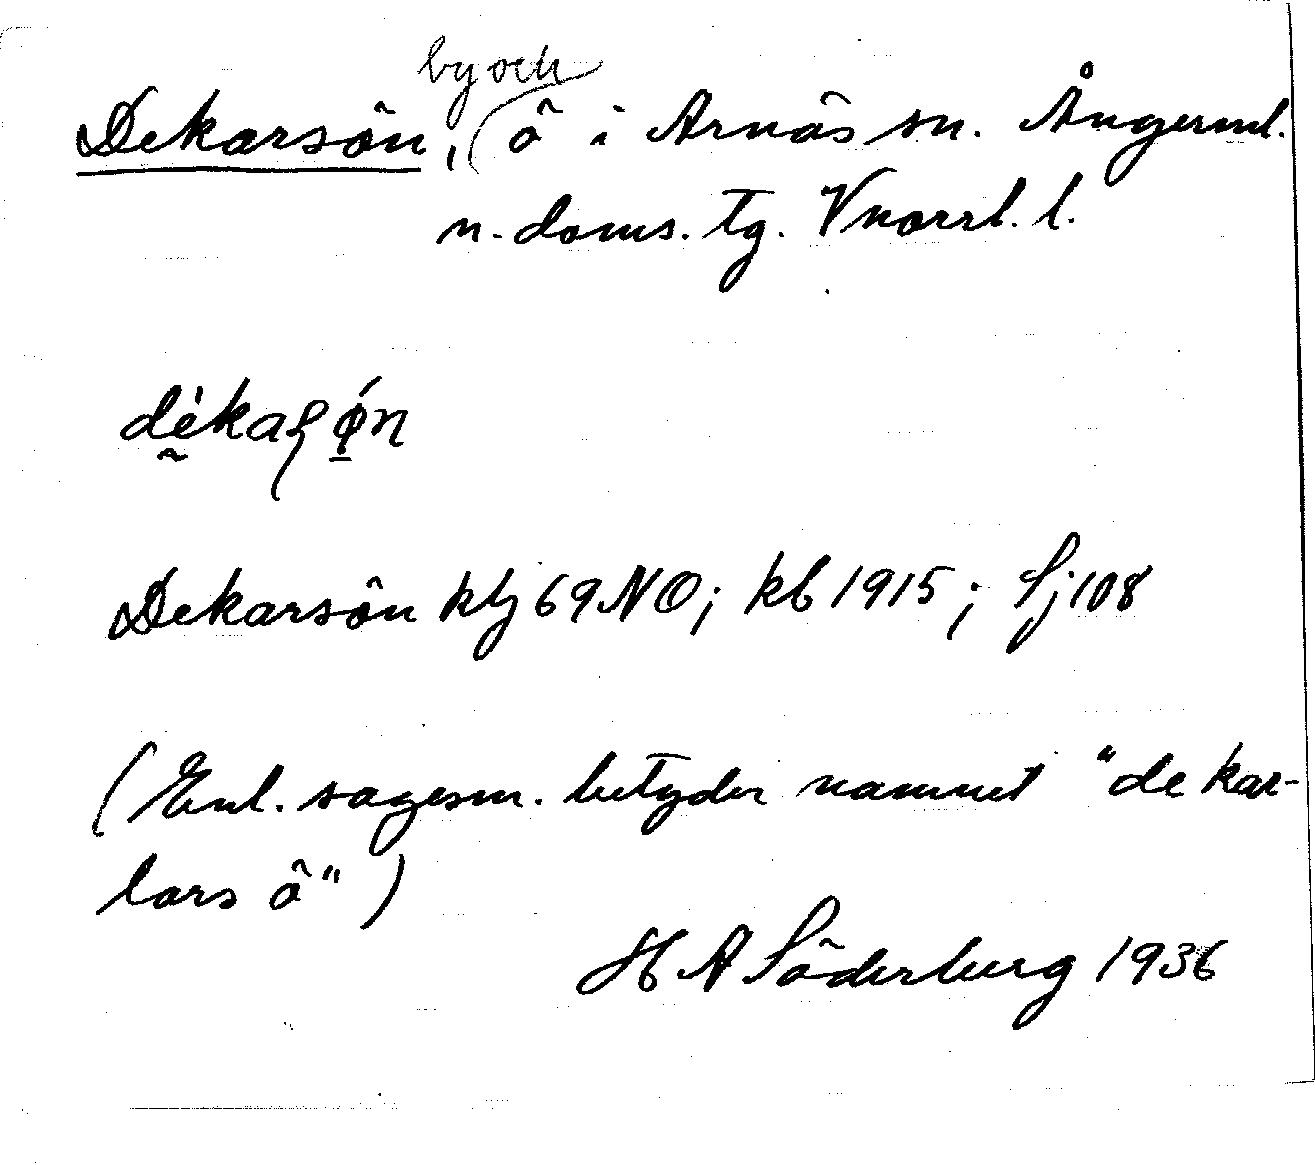 Dekarsön, by och ö i Arnäs sn. Ångerml.
n. doms. tg. Vnorrl. l.
Dekarsön ktj 69 NO; kb 1915; Sj 108
(Enl. sagesm. betyder namnet "de kar-
lars ö")
H A Söderberg 1936